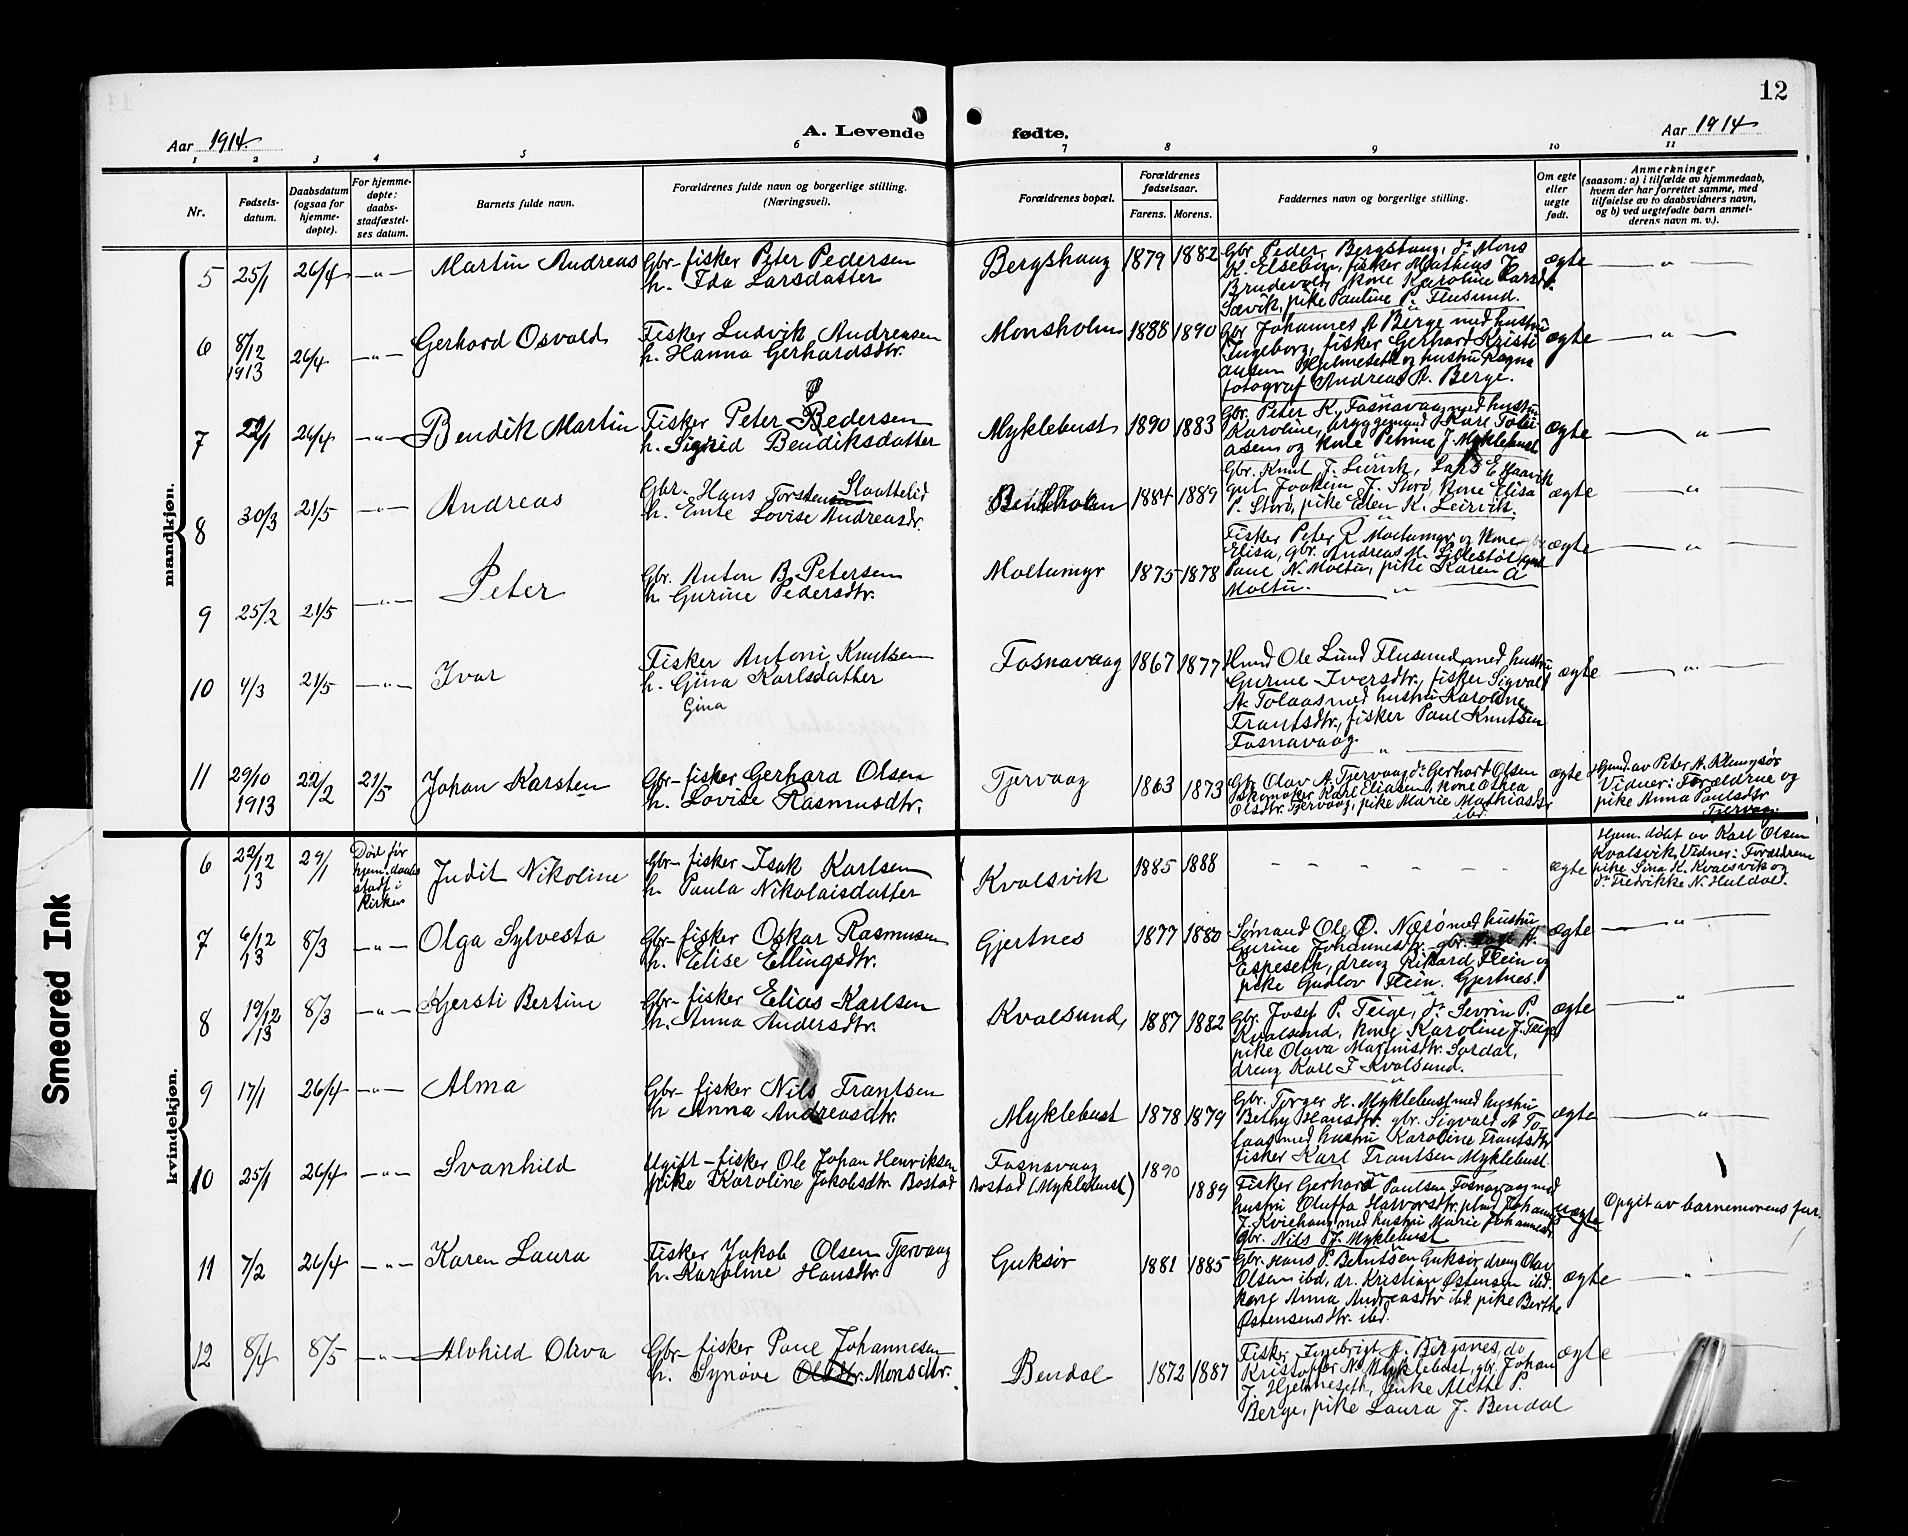 12
Aar 1914.
A. Levende fødte.
Aar 1914
1 2 3 4 5 6 7 8 9 10 11
Nr.
Fødsels-
datum.
Daabsdatum
(ogsaa for
hjemme-
døpte).
For hjemme-
døpte:
daabs-
stadfæstel-
ses datum.
Barnets fulde navn.
Forældrenes fulde navn og borgerlige stilling.
(Næringsvei).
Forældrenes bopæl.
Forældrenes
fødselsaar.
Farens. Morens.
Faddernes navn og borgerlige stilling.
Om egte
eller
uegte
født.
Anmerkninger
(saasom: a) i tilfælde av hjemmedaab,
hvem der har forrettet samme, med
tilføielse av to daabsvidners navn,
og b) ved uegtefødte barn anmel-
derens navn m. v.).
mandkjøn.
5 25/1 26/4 —"— Martin Andreas
Gbr-fisker Peter Pedersen
h. Ida Larsdatter
Bergshaug 1879 1882
Gbr. Peder Bergshaug, do Mons
K. Elsebøe, fisker Mathias J.
Brudevold, kone Karoline Larsdt.
Sævik, pike Pauline P. Flusund.
ægte —"—
6 8/12 1913 26/4 —"— Gerhard Osvald
Fisker Ludvik Andreasen
h. Hanna Gerhardsdtr.
Monsholm 1888 1890
Gbr Johannes A Berge med hustru
Ingeborg, fisker Gerhard Kristi
ansen Hjelmeseth og hustru Ragna
fotograf Andreas A. Berge.
ægte —"—
7 22/1 26/4 —"— Bendik Martin
P
Fisker Peter Pedersen
h. Sigrid Bendiksdatter
Myklebust 1890 1883
Gbr. Peter K. Fosnavaag med hustru
Karoline, bryggemand Karl Tobi
asen og kone Petrine J. Myklebust
ægte —"—
8 30/3 21/5 —"— Andreas
Gbr. Hans Torstensen Slaattelid
h. Emte Lovise Andreasdr.
1884 1889
Gbr. Knut T. Leirvik, Lars E Haavik
gut Joakim J. Storø, kone Elisa
P. Storø, pike Elen K. Leirvik.
ægte —"—
9 25/2 21/5 —"— Peter
Gbr. Anton B. Petersen
h. Gurine Pedersdtr.
Moltumyr 1875 1878
Fisker Peter R Moltumyr og kone
Elisa, gbr. Andreas M.
Paul N. Moltu, pike Karen A
Moltu. "
ægte —"—
10 4/3 21/5 —"— Ivar
Fisker Antoni Knutsen
h. Gina Karlsdatter
Gina
Fosnavaag 1867 1877
Hmd Ole Lund Flusund med hustru
Gurine Iversdtr., fisker Sigvald
A. Tolaas med hustru Karoline
Frantsdtr., fisker Paul Knutsen
Fosnavaag. "
ægte —"—
11 29/10 1913 22/2 21/5 Johan Karsten
Gbr-fisker Gerhard Olsen
h. Lovise Rasmusdtr.
Tjervaag 1863 1873
Gbr Olav A. Tjervaag, do Gerhard Olsen
skomaker Karl Eliasen, kone Othea
Olsdtr. Tjervaag, pike Marie Mathiasdr
ibd.
ægte
Hjmd. av Peter A. Klungsør
Vidner: Forældrene og
pike Anna Paulsdtr
Tjervaag.
kvindekjøn.
6 22/12 13 29/1
Død før
hjem.daabs
stadf. i
kirken
Judit Nikoline
Gbr-fisker Isak Karlsen
h. Paula Nikolaisdatter
Kvalsvik 1885 1888
– – – – – –
ægte
Hjem.døbt av Karl Olsen
Kvalsvik. Vidner: Forældrene
pike Sina K. Kvalsvik og
do Fredrikke N. Huldal.
7 6/12 13 8/3 —"— Olga Sylvesta
Gbr-fisker Oskar Rasmusen
h. Elise Ellingsdtr.
Gjertnes 1877 1880
Sømand Ole O. Nærø med hustru
Gurine Johannesdtr. gbr. A.
Espeseth, dreng Rikard Flein og
pike Gudlov Flein. Gjertnes.
ægte —"—
8 19/12 13 8/3 —"— Kjersti Bertine
Gbr-fisker Elias Karlsen
h. Anna Andersdtr.
Kvalsund, 1887 1882
Gbr. Josef P. Teige, do Sevrin P.
Kvalsund, kone Karoline J. Teige
pike Olava Martinsdtr. Sørdal,
dreng Karl J Kvalsund.
ægte —"—
9 17/1 26/4 —"— Alma
Gbr-fisker Nils Frantsen
h Anna Andreasdtr.
Myklebust 1878 1879
Gbr. Torger H. Myklebust med hustru
Bethy Hansdtr. gbr. Sigvald A To-
laas med hustru Karoline Frantsdtr
fisker Karl Frantsen Myklebust
ægte —"—
10 25/1 26/4 —"— Svanhild
Ugift-fisker Ole Johan Henriksen
pike Karoline Jakobsdtr. Bostad
Fosnavaag
Bostad (Myklebust) 1890 1889
Fisker Gerhard Paulsen Fosnavaag med
hustru Oluffa Halvorsdtr. plmd Johannes
J. Kviehaug med hustru Marie Johannesdr
Gbr. Nils J. Myklebust
uægte
Opgit av barnemorens far.
11 7/2 26/4 —"— Karen Laura
Fisker Jakob Olsen Tjervaag
h. Karoline Hansdtr.
Guksør 1881 1885
Gbr. Hans P. Berntsen Guksør dreng Olav
Olsen ibd, dr. Kristian Østensen ibd.
kone Anna Andreasdtr ibd. pike Berthe
Østensensdtr. ibd.
ægte —"—
12 8/4 8/5 —"— Alvhild Oliva
Gbr-fisker Paul Johannesen
h. Synøve Olsdtr. Monsdtr.
Bendal 1872 1887
Fisker Ingebrigt A. Bergsnes, do
Kristoffer N. Myklebust, gbr. Johan
J. Hjelmeseth, enke Alette P.
Berge, pike Laura J. Bendal
ægte
Smeared Ink